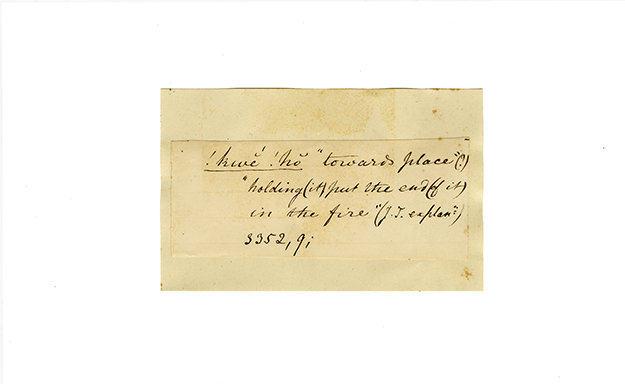 !kwĕ !hŏ "towards place" (?)
"holding (it) put the end (of it)
in the fire" (J.T. explan:)
3352, 9;